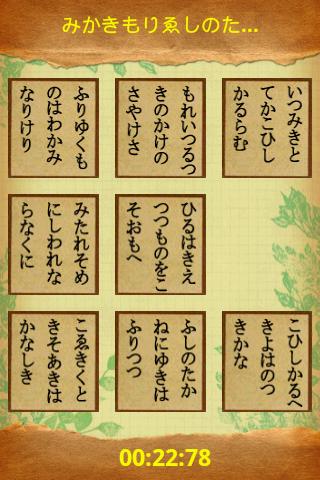 みかきもりゑしのた...
ふりゆくも
のはわかみ
なりけり
もれいつるつ
きのかけの
さやけさ
いつみきと
てかこひし
かるらむ
みたれそめ
にしわれな
らなくに
ひるはきえ
つつものをこ
そおもへ
こゑきくと
きそあきは
かなしき
ふしのたか
ねにゆきは
ふりつつ
こひしかるへ
きよはのつ
きかな
00:22:78